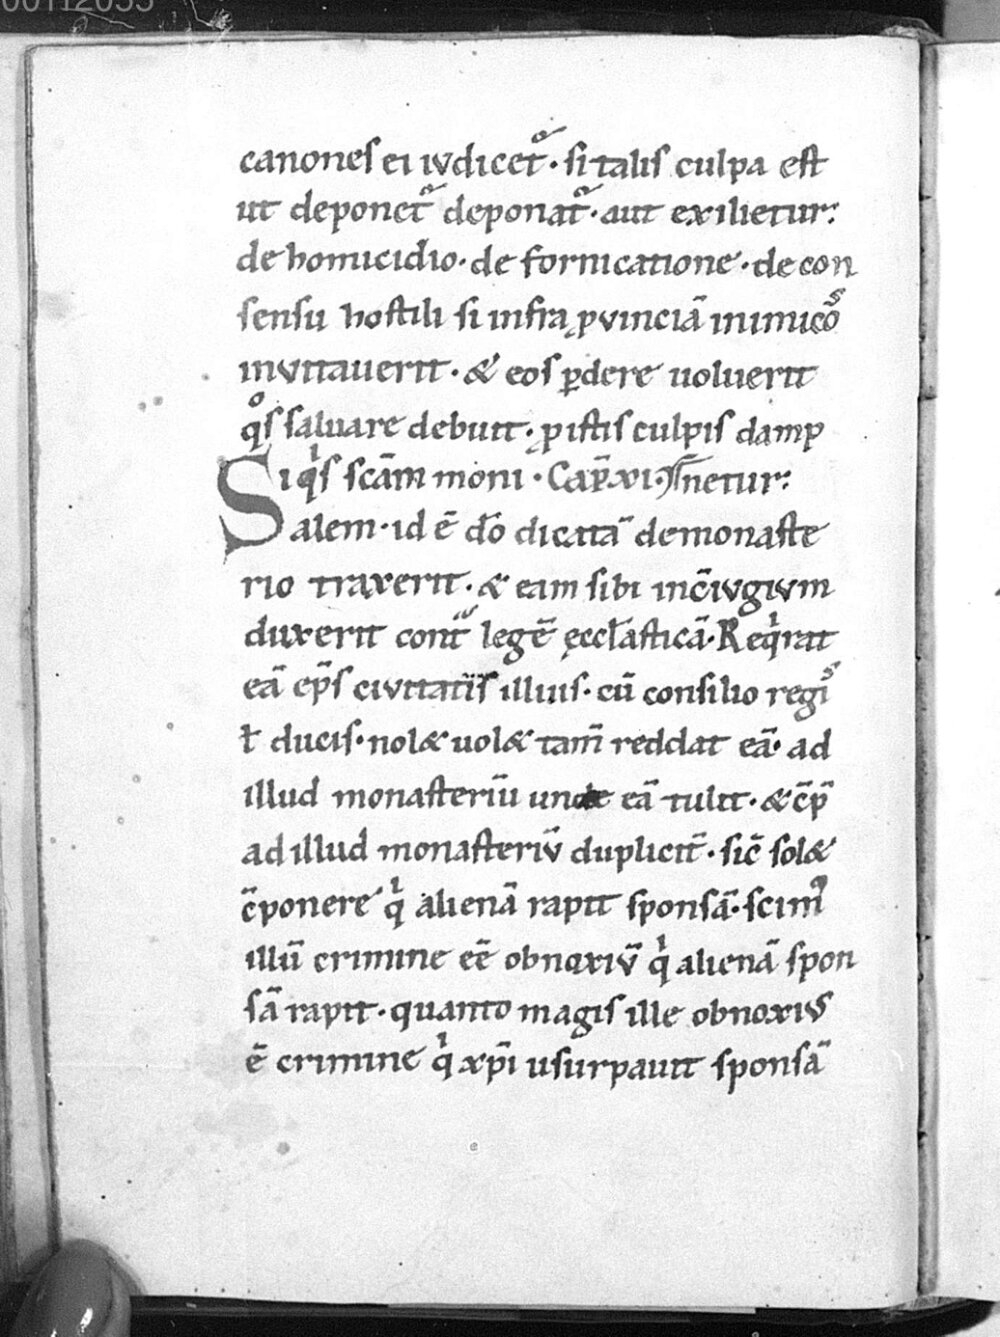 canones ei iudicet᷑· si talis culpa est
ut deponet᷑ deponat᷑· aut exilietur:
de homicidio· de fornicatione· de con
sensu hostili si infra ꝓvinciā inimicos
invitauerit· & eos ꝑdere uoluerit
qͦs saluare debuit· ꝓ istis culpis damp
Si qͥs scām moni· Cap̄· xi· netur:
alem· id ē dō dicatā de monaste
rio traxerit· & eam sibi in c̄iugium
duxerit cont̄ legē ęccl̄asticā· Reqͥrat
eā ep̄s civitatis illius· cū consilio regis
ł ducis· nol& uol& tam̄ reddat eā· ad
illud monasteriū unde eā tulit· & c̄p̄
ad illud monasteriū duplicit̄· sic̄ sol&
c̄ponere qͥ alienā rapit sponsā· scimꝰ
illū crimine eē obnoxiū qͥ alienā spon
sā rapit· quanto magis ille obnoxius
ē crimine qͥ xp̄i usurpauit sponsā